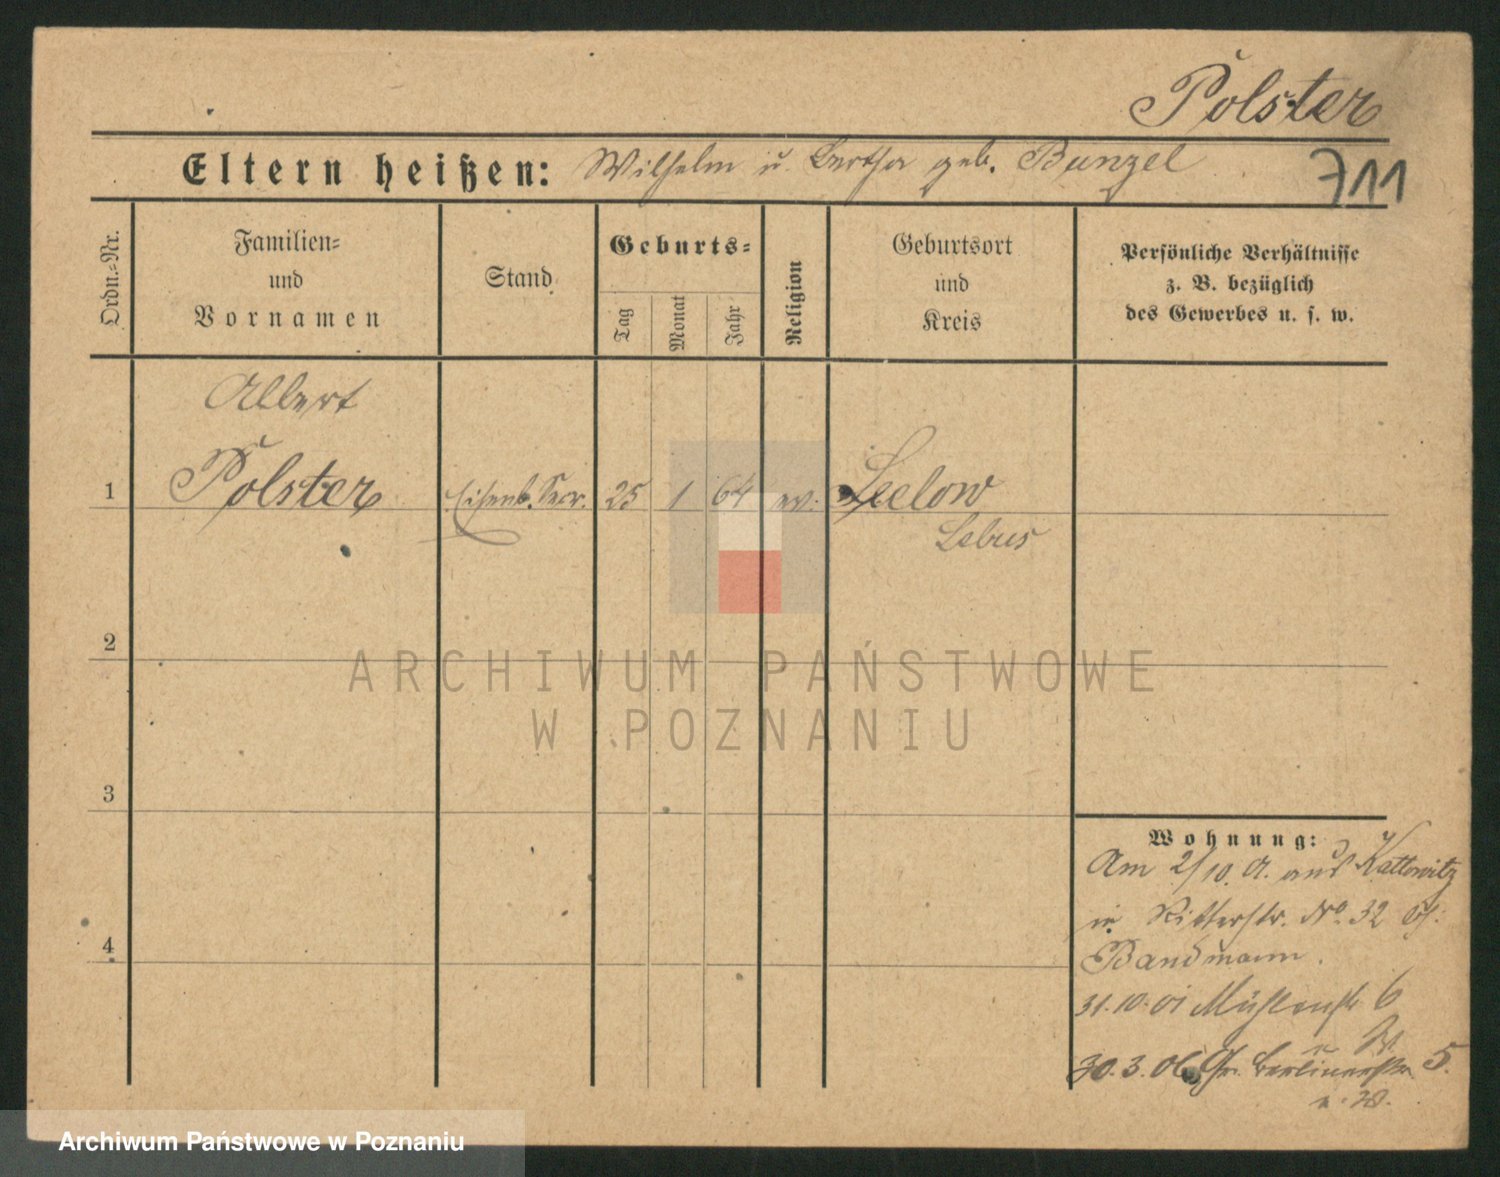 Polster
Eltern heißen: Wilhelm u. Bertha geb. Bunzel
711
Ordn.-Nr.
Familien-
und
Vornamen
Stand
Geburts-
Tag
Monat
Jahr
Religion
Geburtsort
und
Kreis
Persönliche Verhältnisse
z. B. bezüglich
des Gewerbes u. s. w.
Albert
1 Polster Eisenb. Secr. 25 1 64 ev. Seelow
Lebus
2
3
4
ARCHIWUM PAŃSTWOWE
W POZNANIU
Wohnung:
Am 2/10. 01. aus Kattowitz
in Ritterstr. No. 32 bei
Bandmann.
31.10.01 Mühlenstr 6
u W
30.3.06 Gr. Berlinerstr 5.
u. W.
Archiwum Państwowe w Poznaniu